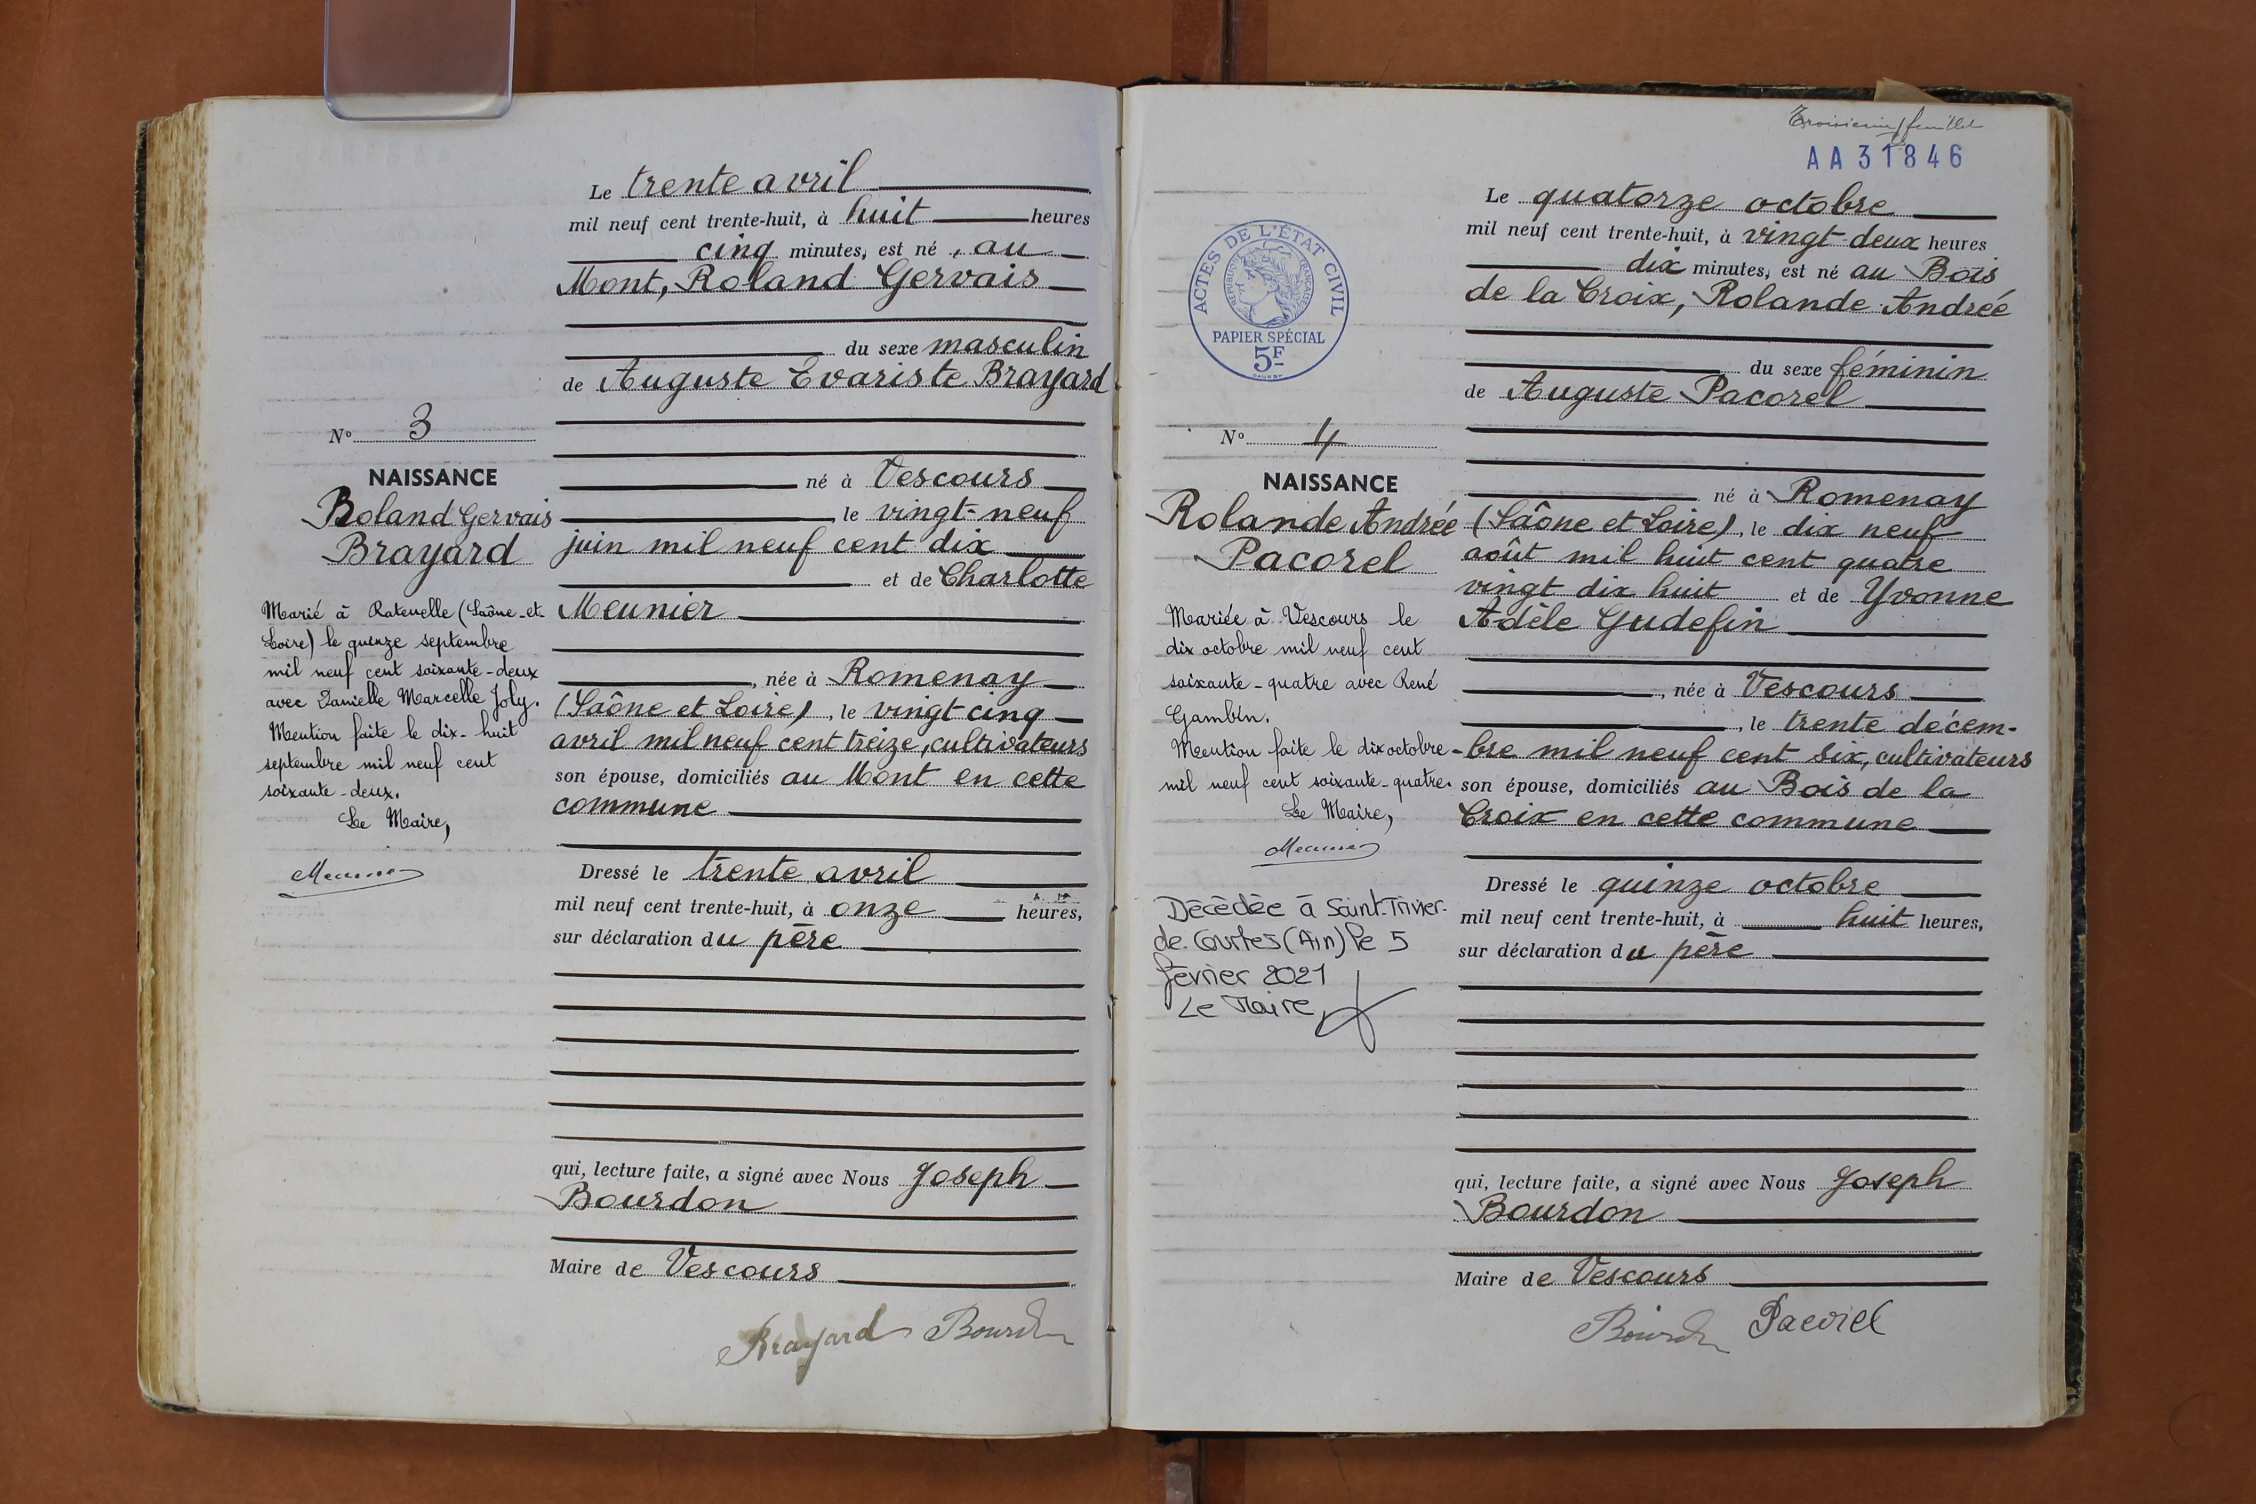 Le trente avril
mil neuf cent trente-huit, à huit heures
cinq minutes, est né, au
Mont, Roland Gervais
du sexe masculin
de Auguste Evariste Brayard
né à Vescours
le vingt-neuf
juin mil neuf cent dix
et de Charlotte
Meunier
, née à Romenay
(Saône et Loire), le vingt cinq
avril mil neuf cent treize, cultivateurs
son épouse, domiciliés au Mont en cette
commune
Dressé le trente avril
mil neuf cent trente-huit, à onze heures,
sur déclaration du père
qui, lecture faite, a signé avec Nous Joseph
Bourdon
Maire de Vescours
Brayard Bourdon
No 3
NAISSANCE
Roland Gervais
Brayard
Marié à Ratenelle (Saône-et-
Loire) le quinze septembre
mil neuf cent soixante-deux
avec Danielle Marcelle Joly.
Mention faite le dix-huit
septembre mil neuf cent
soixante-deux.
Le Maire,
Meunier
Troisième feuillet
AA31846
Le quatorze octobre
mil neuf cent trente-huit, à vingt-deux heures
dix minutes, est né au Bois
de la Croix, Rolande Andrée
du sexe féminin
de Auguste Pacorel
né à Romenay
(Saône et Loire), le dix neuf
août mil huit cent quatre
vingt dix huit et de Yvonne
Adèle Gudefin
, née à Vescours
, le trente décem-
-bre mil neuf cent six, cultivateurs
son épouse, domiciliés au Bois de la
Croix en cette commune
Dressé le quinze octobre
mil neuf cent trente-huit, à huit heures,
sur déclaration du père
qui, lecture faite, a signé avec Nous Joseph
Bourdon
Maire de Vescours
Bourdon Pacorel
ACTES DE L'ÉTAT CIVIL
RÉPUBLIQUE FRANÇAISE
PAPIER SPÉCIAL
5F
No 4
NAISSANCE
Rolande Andrée
Pacorel
Mariée à Vescours le
dix octobre mil neuf cent
soixante-quatre avec René
Gambin.
Mention faite le dix octobre
mil neuf cent soixante-quatre.
Le Maire,
Meunier
Décédée à Saint-Trivier-
de-Courtes (Ain) le 5
février 2021
Le Maire,